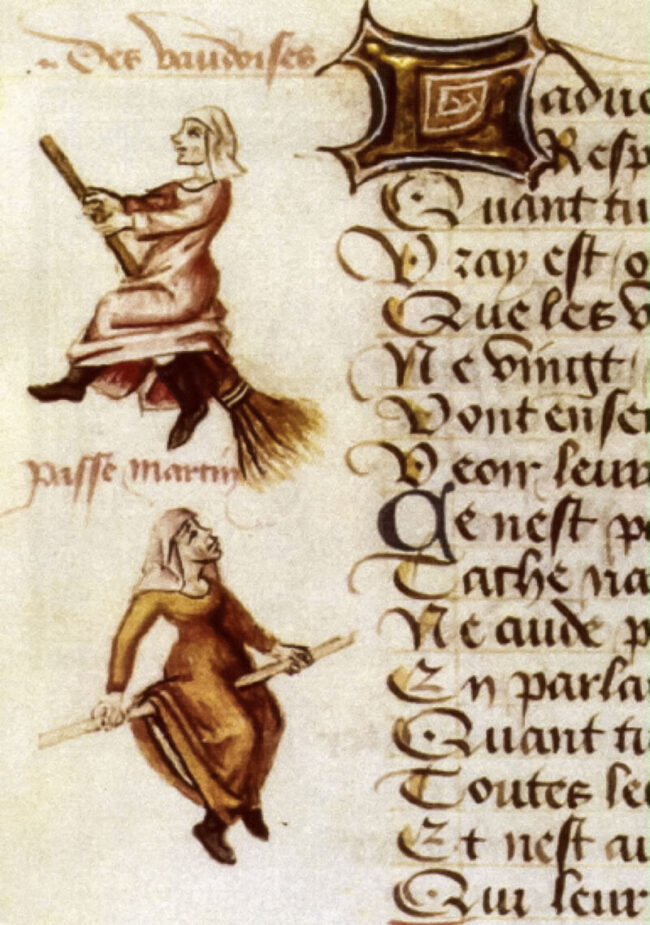 Des vaudoises
passe martin
L adue
Resp
Quant tu
Vray est q
Que les v
Ne vingt
Vont ense
Veoir leur
Ce nest p
Tache na
Ne aude p
En parla
Quant tu
Toutes le
Et nest au
Qui leur